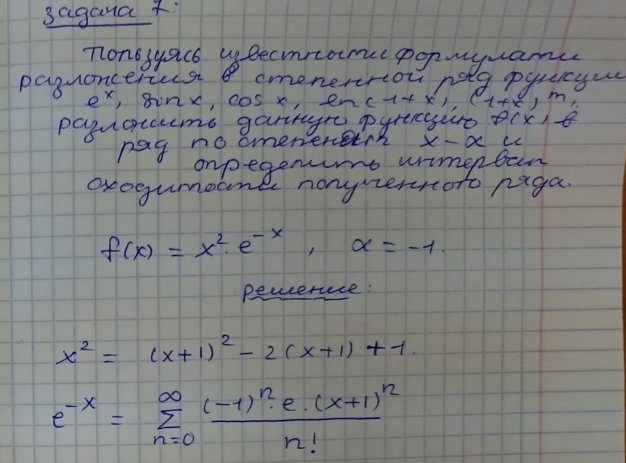 задача 7:
Пользуясь известными формулами
разложения в степенной ряд функции
e^x, sin x, cos x, ln(1+x), (1+x)^m,
разложить данную функцию f(x) в
ряд по степеням x-α и
определить интервал
сходимости полученного ряда.
f(x) = x²·e^{-x}, α = -1.
решение:
x² = (x+1)² - 2(x+1) + 1.
e^{-x} = ∑_{n=0}^{∞} (-1)^n·e·(x+1)^n / n!